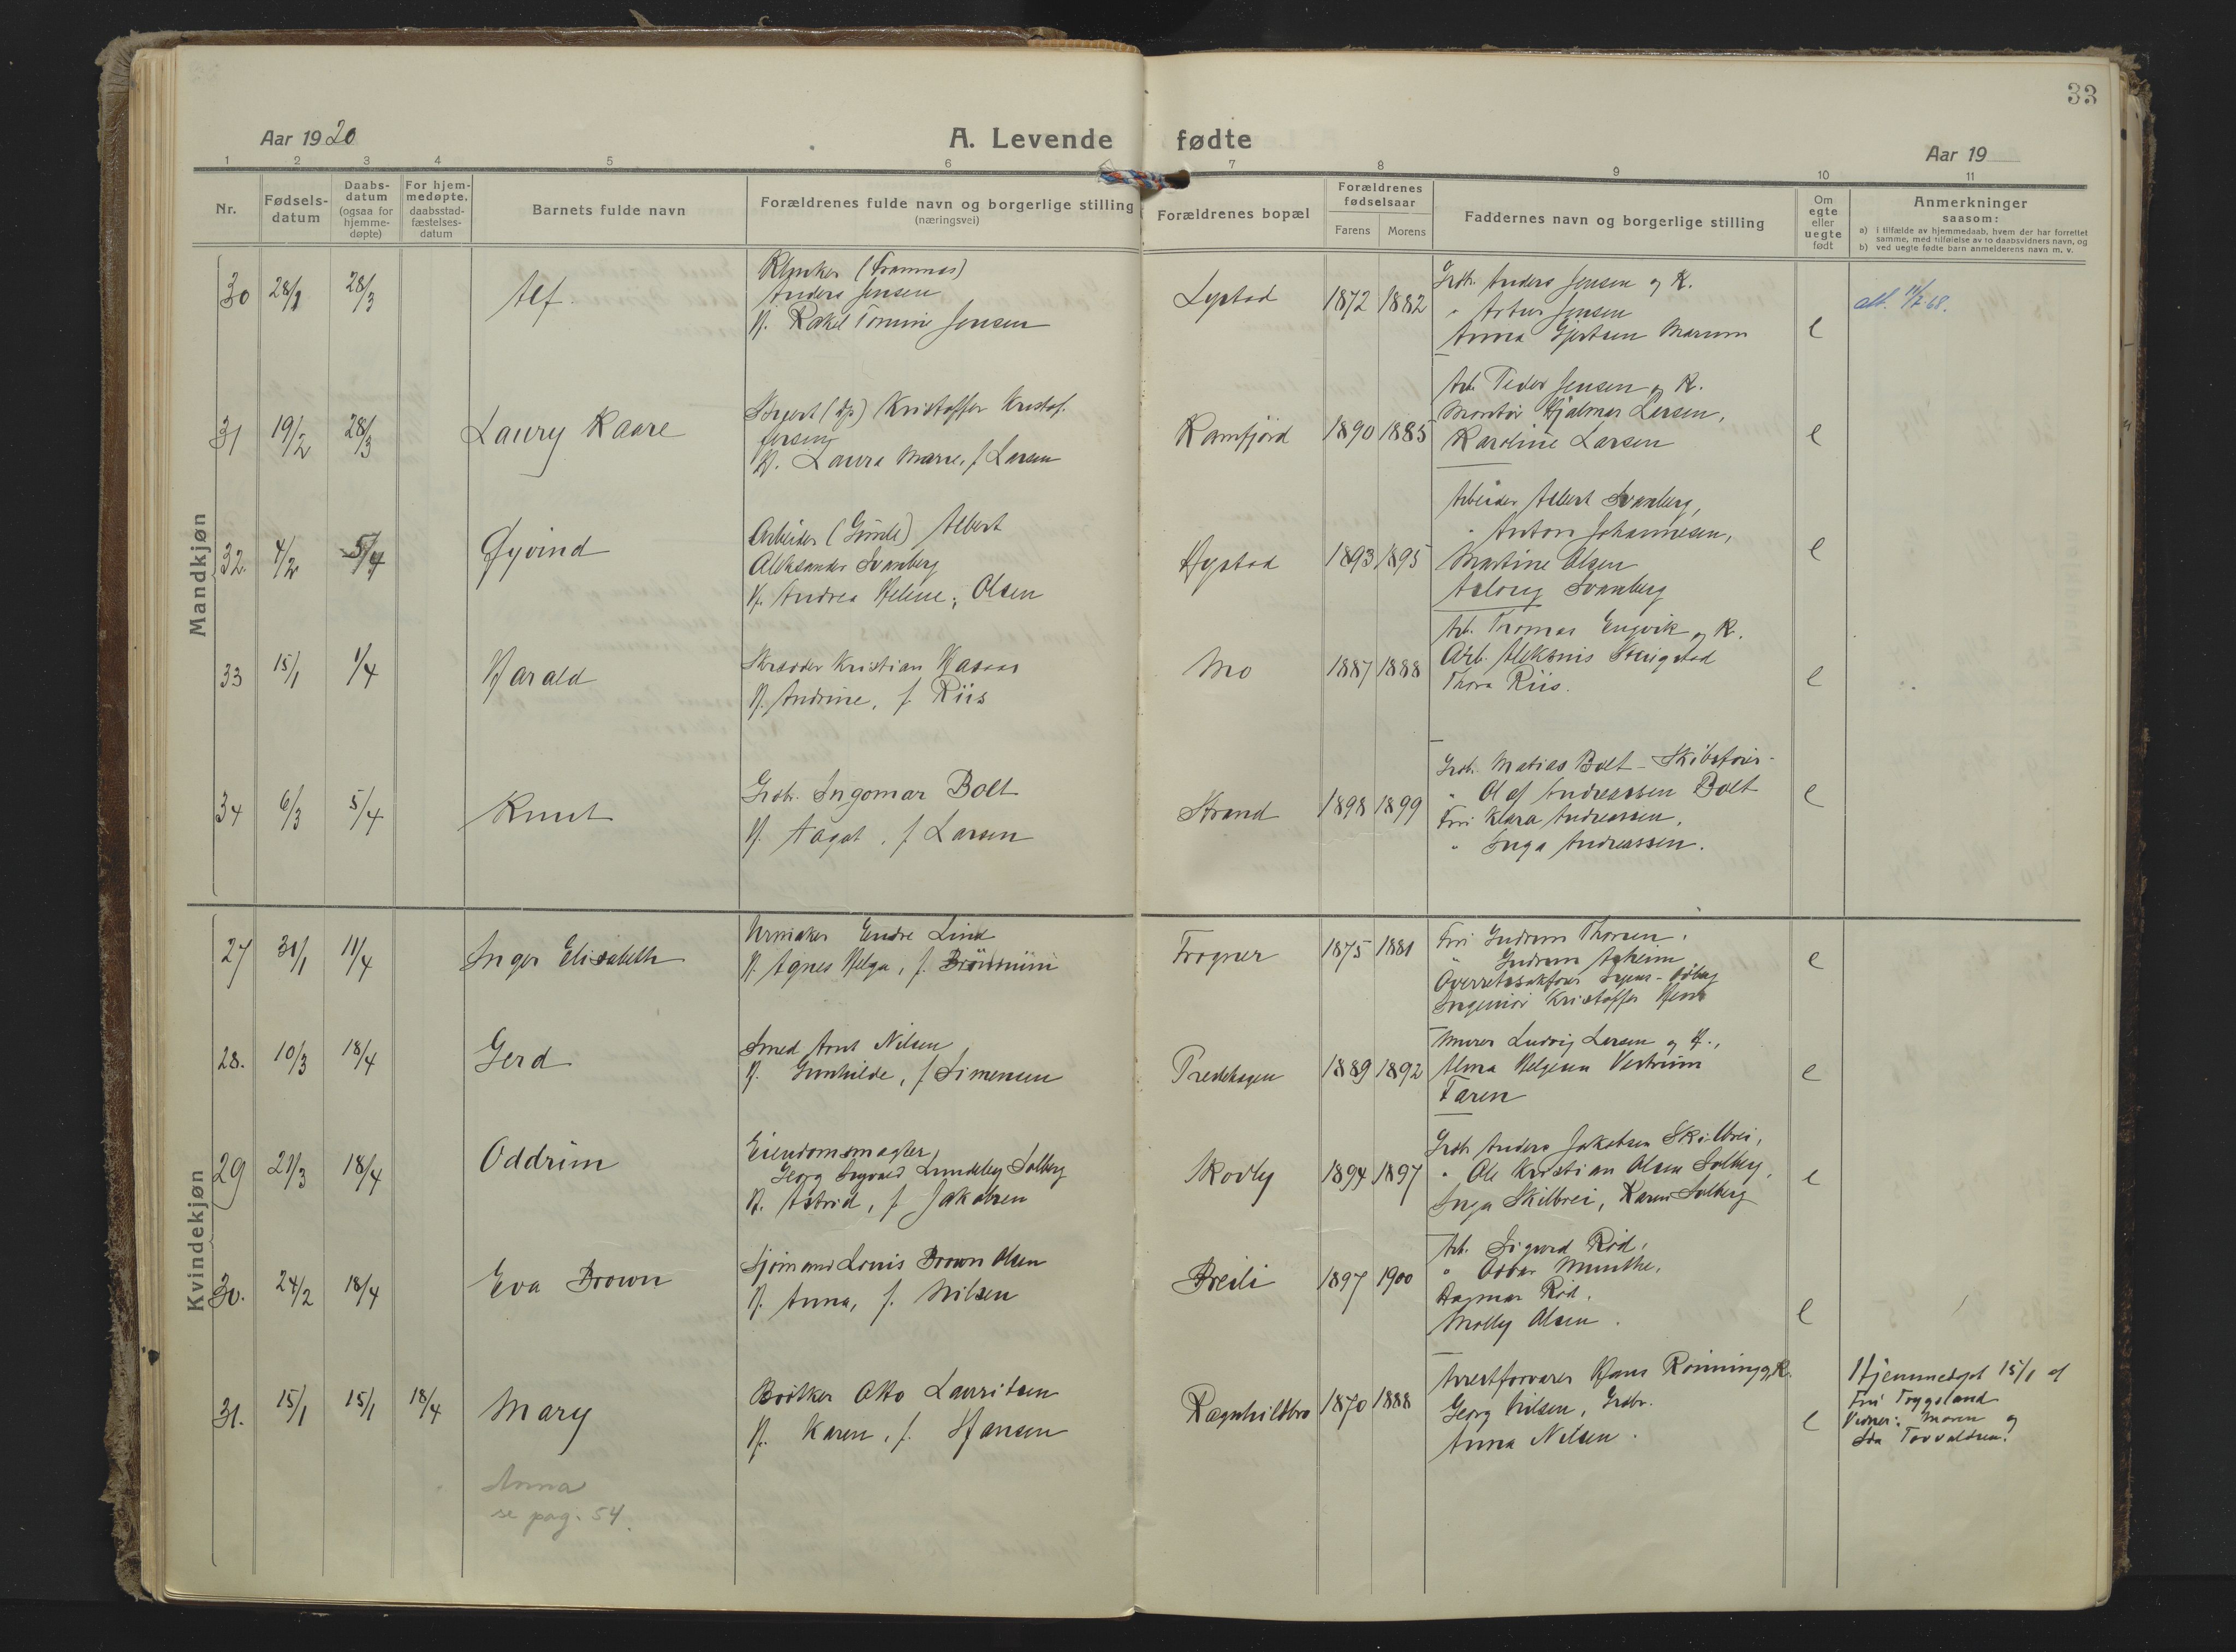 33
Aar 1920
A. Levende fødte
Aar 19
1 2 3 4 5 6 7 8 9 10 11
Nr.
Fødsels-
datum
Daabs-
datum
(ogsaa for
hjemme-
døpte)
For hjem-
medøpte.
daabsstad-
fæstelses-
datum
Barnets fulde navn
Forældrenes fulde navn og borgerlige stilling
(næringsvei)
Forældrenes bopæl
Forældrenes
fødselsaar
Farens Morens
Faddernes navn og borgerlige stilling
Om
egte
eller
uegte
født
Anmerkninger
saasom:
a) i tilfælde av hjemmedaab, hvem der har forrettet
samme, med tilføielse av to daabsvidners navn, og
b) ved uegte fødte barn anmelderens navn m. v.
Mandkjøn
30 28/1 28/3 Alf
(Framnæs)
Anders Jensen
H. Rakel Tomine Jensen
1872 1882
Grdbr. Anders Jensen og K.
" Artur Jensen
Anna Gjertsen Marum
e
att. 11/2 68.
31 19/2 28/3 Laury Kaare
Kristoffer Kristof-
fersen
H. Laura Marie, f. Larsen
Kamfjord 1890 1885
Arb. Peder Jensen og K.
Montør Hjalmar Larsen,
Karoline Larsen
e
32. 4/2 5/4 Øyvind
Arbeider (Gimle) Albert
Aleksander Svanberg
H. Andrea Helene, Olsen
Hystad 1893 1895
Arbeider Albert Svanberg,
" Anton Johannesen,
Martine Olsen
Aslaug Svanberg
e
33 15/1 1/4 Harald
Skrædder Kristian Kasaas
H. Andrine, f. Riis
Mo 1887 1888
Arb. Thomas Engvik og K.
Arb. Stuigstad
Thora Riis.
e
34 6/3 5/4 Knut
Grdbr. Ingomar Bolt
H. Aagot, f. Larsen
Strand 1898 1899
Grdb. Matias Bolt - Skibsfører -
" Olaf Andreassen Bolt
Frk. Klara Andreassen,
" Inga Andreassen.
e
Kvindekjøn
27 31/1 11/4 Inger Elisabeth
Urmaker Endre Lind
H. Agnes Helga, f.
Frogner 1875 1881
Frk. Gudrun Thorsen.
" Gudrun Askeim
Overretssakfører
Ingeniør Kristoffer
e
28. 10/3 18/4 Gerd
Smed Arnt Nilsen
H. Gunhilde, f. Simensen
Preståsen 1889 1892
Murer Ludvig Larsen og H.,
Alma Helgesen Vestrum
Faren
e
29 21/3 18/4 Oddrun
Eiendomsmægler,
Georg Ingvald Lundeby Solberg
H. Astrid, f. Jakobsen
Skovly 1894 1897
Grdb. Anders Jakobsen Skilbrei,
" Ole Kristian Olsen Solberg,
Inga Skilbrei, Karen Solberg
e
30. 24/2 18/4 Eva Brown
Sjømand Louis Brown Olsen
H. Anna, f. Nilsen
Breili 1897 1900
Arb. Sigurd Rød,
" Oskar Munthe,
Dagmar Rød.
Molly Olsen.
e
31. 15/1 15/1 18/4 Mary
Bødtker Otto Lauritsen
H. Karen, f. Hansen
Ragnhildbro 1870 1888
Arrestforvarer Hans Rønning og K.
Georg Nilsen, Grdbr.
Anna Nilsen.
e
Hjemmedøpt 15/1 af
Fru Tryggeland
Vidner: Moren og
Ida Torvaldsen.
Anna
se pag. 54.